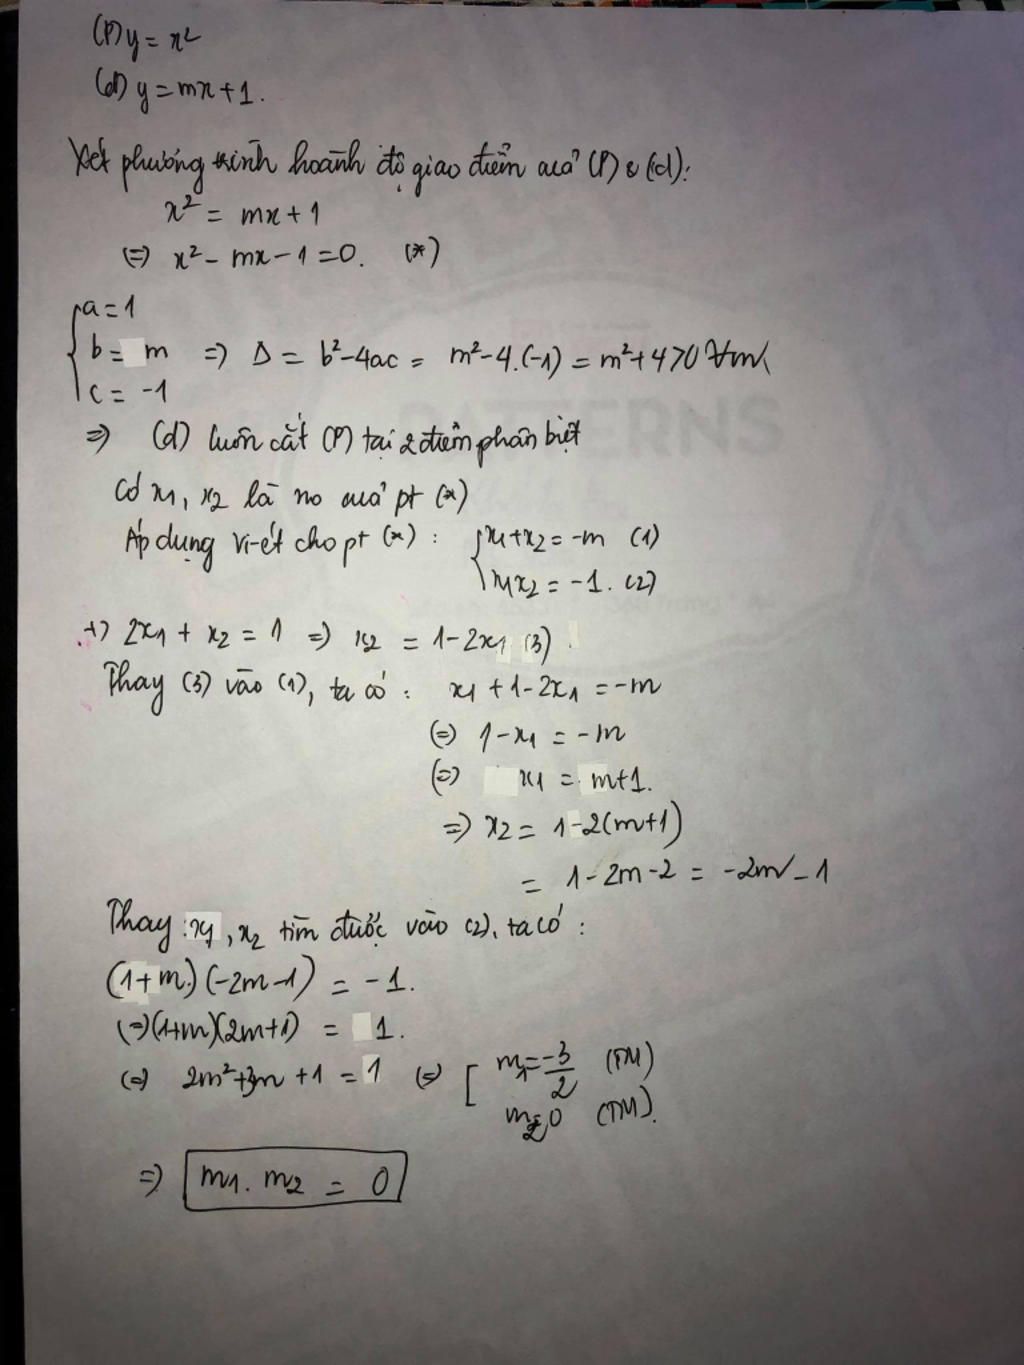 (P) y = x²
(d) y = mx + 1.
Xét phương trình hoành độ giao điểm của (P) & (d):
x² = mx + 1
(=) x² - mx - 1 = 0. (*)
{ a = 1
b = m => Δ = b² - 4ac = m² - 4.(-1) = m² + 4 > 0 ∀m
c = -1
=> (d) luôn cắt (P) tại 2 điểm phân biệt
Có x1, x2 là no của pt (*)
Áp dụng Vi-ét cho pt (*) : { x1 + x2 = -m (1)
x1x2 = -1. (2)
+) 2x1 + x2 = 1 => x2 = 1 - 2x1 (3)
Thay (3) vào (1), ta có : x1 + 1 - 2x1 = -m
(=) 1 - x1 = -m
(=) x1 = m + 1.
=> x2 = 1 - 2(m + 1)
= 1 - 2m - 2 = -2m - 1
Thay x1, x2 tìm được vào (2), ta có :
(1 + m)(-2m - 1) = -1.
(=) (1 + m)(2m + 1) = 1.
(=) 2m² + 3m + 1 = 1 (=) [ m1 = -3/2 (TM)
m2 = 0 (TM).
=> m1 . m2 = 0
PATTERNS